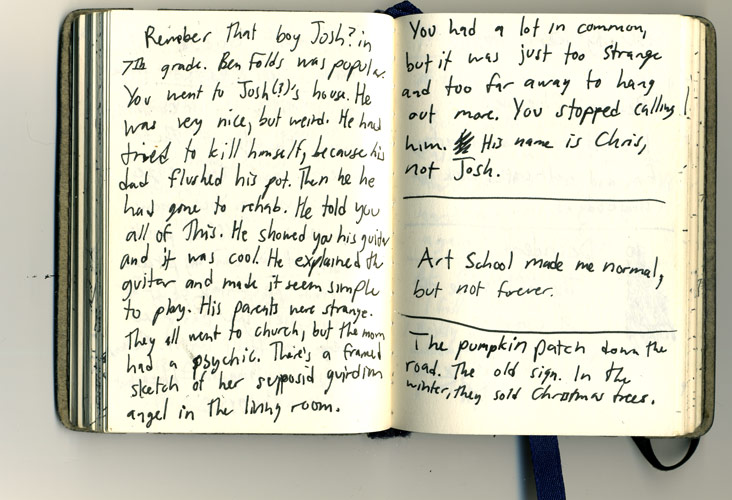 Remember that boy Josh? in
7th grade. Ben Folds was popular.
You went to Josh(?)'s house. He
was very nice, but weird. He had
tried to kill himself, because his
dad flushed his pot. Then he he
had gone to rehab. He told you
all of this. He showed you his guitar
and it was cool. He explained the
guitar and made it seem simple
to play. His parents were strange.
They all went to church, but the mom
had a psychic. There's a framed
sketch of her supposid guirdian
angel in the living room.
You had a lot in common,
but it was just too strange
and too far away to hang
out more. You stopped calling
him. His name is Chris,
not Josh.
Art School made me normal,
but not forever.
The pumpkin patch down the
road. The old sign. In the
winter, they sold Christmas trees.